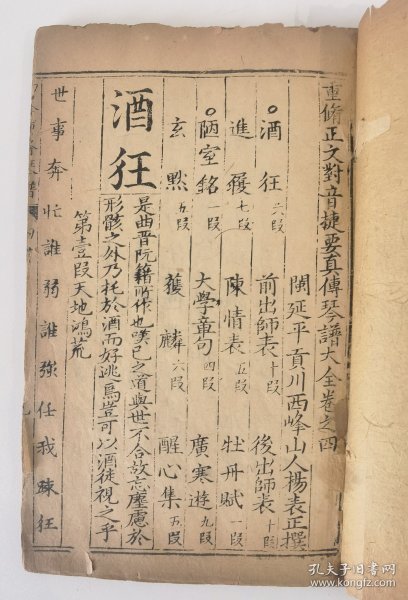 重脩正文對音捷要真傳琴譜大全卷之四
閩延平貢川西峰山人楊表正撰
酒狂 六段 前出師表 十段 後出師表 十段
進履 七段 陳情表 五段 牡丹賦 一段
陋室銘 一段 大學章句 四段 廣寒遊 九段
玄默 五段 獲麟 六段 醒心集 五段
酒狂
是曲晉阮籍所作也嘆已之道與世不合故忘塵慮於
形骸之外乃托於酒而好逃焉豈可以酒徒視之乎
第壹段天地鴻荒
世事奔忙誰弱誰強任我踈狂
孔夫子旧书网
www.kongfz.com